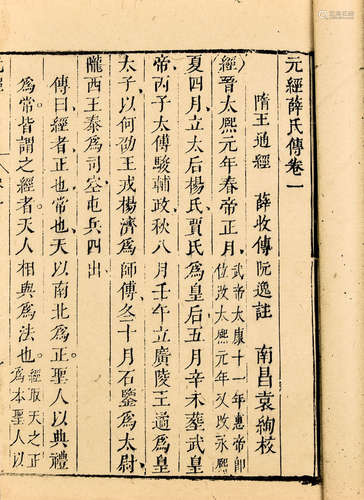 元經薛氏傳卷一
隋王通經 薛收傳阮逸註 南昌袁絢校
經晉太熙元年春帝正月武帝大康十一年惠帝即
位改大熙元年又改永熙
夏四月立太后楊氏賈氏為皇后五月辛未葬武皇
帝丙子太傅駿輔政秋八月壬午立廣陵王遹為皇
太子以何劭王戎楊濟為師傅冬十月石鑒為太尉
隴西王泰為司空屯兵四出
傳曰經者正也常也天以南北為正聖人以典禮
為常皆謂之經者天人相與為法也經取天之正
為本聖人以